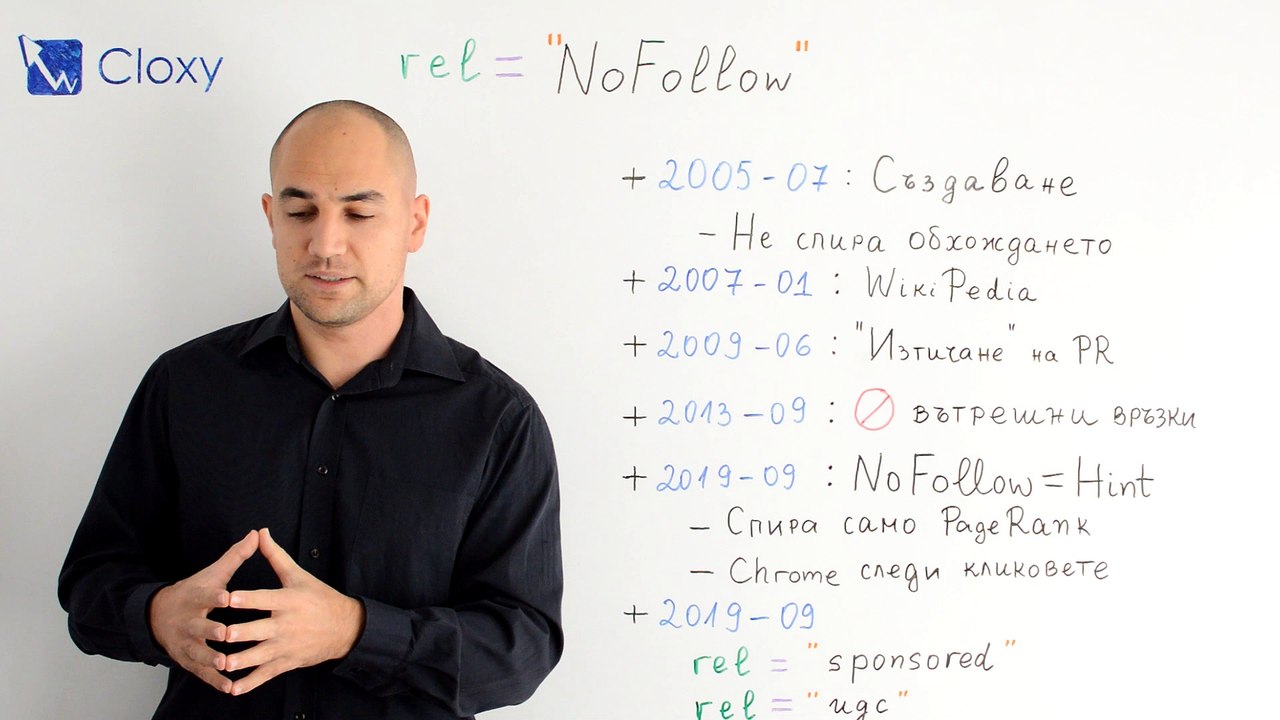 Cloxy
rel = "NoFollow"
+ 2005-07 : Създаване
- Не спира обхождането
+ 2007-01 : WikiPedia
+ 2009-06 : "Изтичане" на PR
+ 2013-09 : вътрешни връзки
+ 2019-09 : NoFollow = Hint
- Спира само PageRank
- Chrome следи кликовете
+ 2019-09
rel = "sponsored"
rel = "ugc"